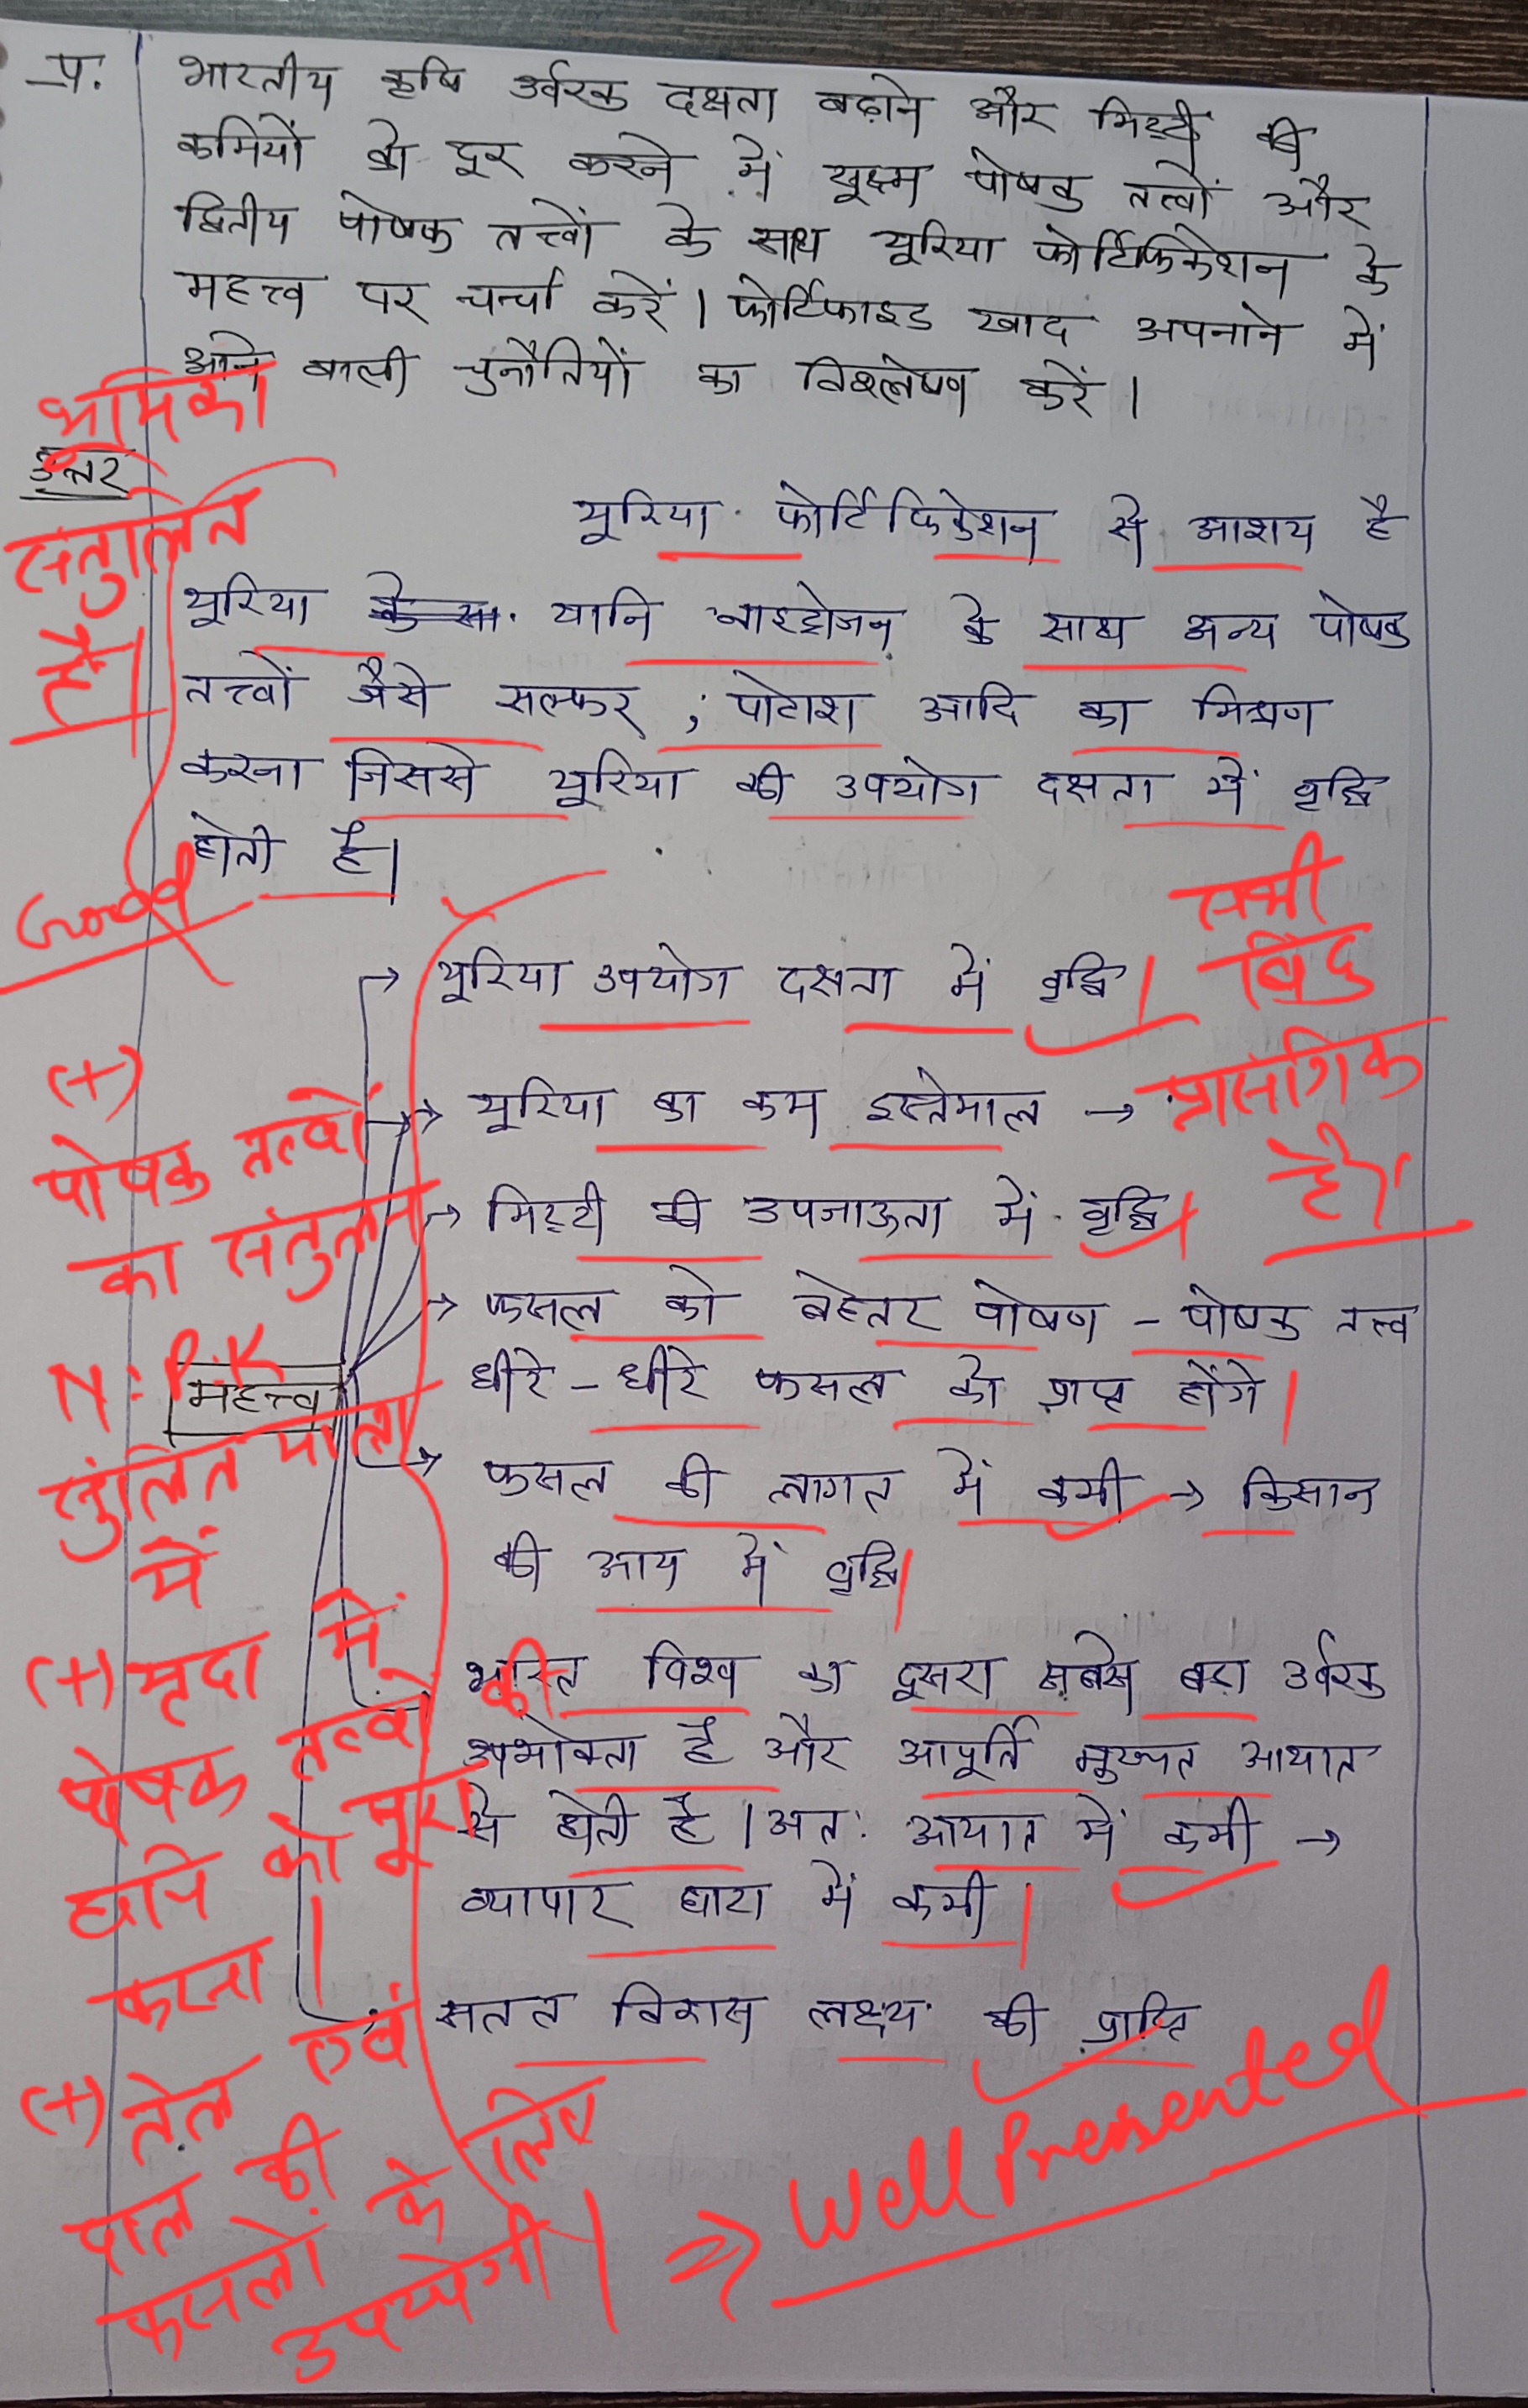 प्र. भारतीय कृषि उर्वरक दक्षता बढ़ाने और मिट्टी की
कमियों को दूर करने में सूक्ष्म पोषक तत्वों और
द्वितीय पोषक तत्त्वों के साथ यूरिया फोर्टिफिकेशन के
महत्त्व पर चर्चा करें। फोर्टिफाइड खाद अपनाने में
आने वाली चुनौतियों का विश्लेषण करें।
भूमिका
उत्तर
संतुलित
है।
यूरिया फोर्टिफिकेशन से आशय है
यूरिया यानि नाइट्रोजन के साथ अन्य पोषक
तत्त्वों जैसे सल्फर, पोटाश आदि का मिश्रण
करना जिससे यूरिया की उपयोग दक्षता में वृद्धि
होती है।
Good
सभी
बिंदु
प्रासंगिक
है।
→ यूरिया उपयोग दक्षता में वृद्धि।
→ यूरिया का कम इस्तेमाल →
→ मिट्टी की उपजाऊता में वृद्धि
→ फसल को बेहतर पोषण - पोषक तत्त्व
धीरे - धीरे फसल को प्राप्त होंगे।
महत्त्व
→ फसल की लागत में कमी → किसान
की आय में वृद्धि।
भारत विश्व का दूसरा सबसे बड़ा उर्वरक
उपभोक्ता है और आपूर्ति मुख्यत आयात
से होती है। अत: आयात में कमी →
व्यापार घाटा में कमी।
सतत विकास लक्ष्य की प्राप्ति
(+)
पोषक तत्वों
का संतुलन
N:P:K
संतुलित मात्रा
में
(+) मृदा में
पोषक तत्वों की
हानि को पूरा
करना।
(+) तेल एवं
दाल की
फसलों के लिए
उपयोगी।
⇒ Well Presented